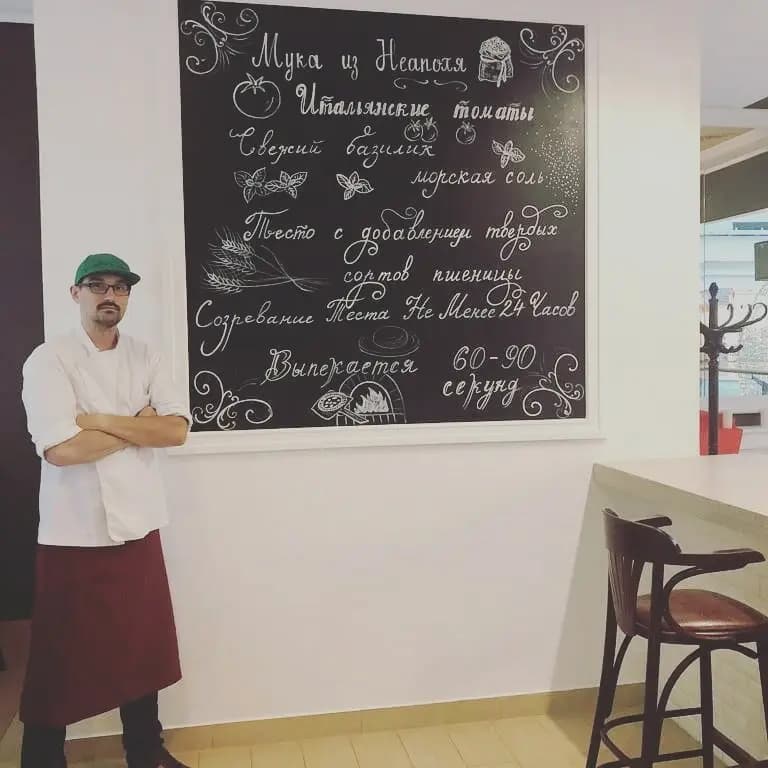 Мука из Неаполя
Итальянские томаты
Свежий базилик
морская соль
Тесто с добавлением твердых
сортов пшеницы
Созревание Теста Не Менее 24 Часов
Выпекается 60-90
секунд